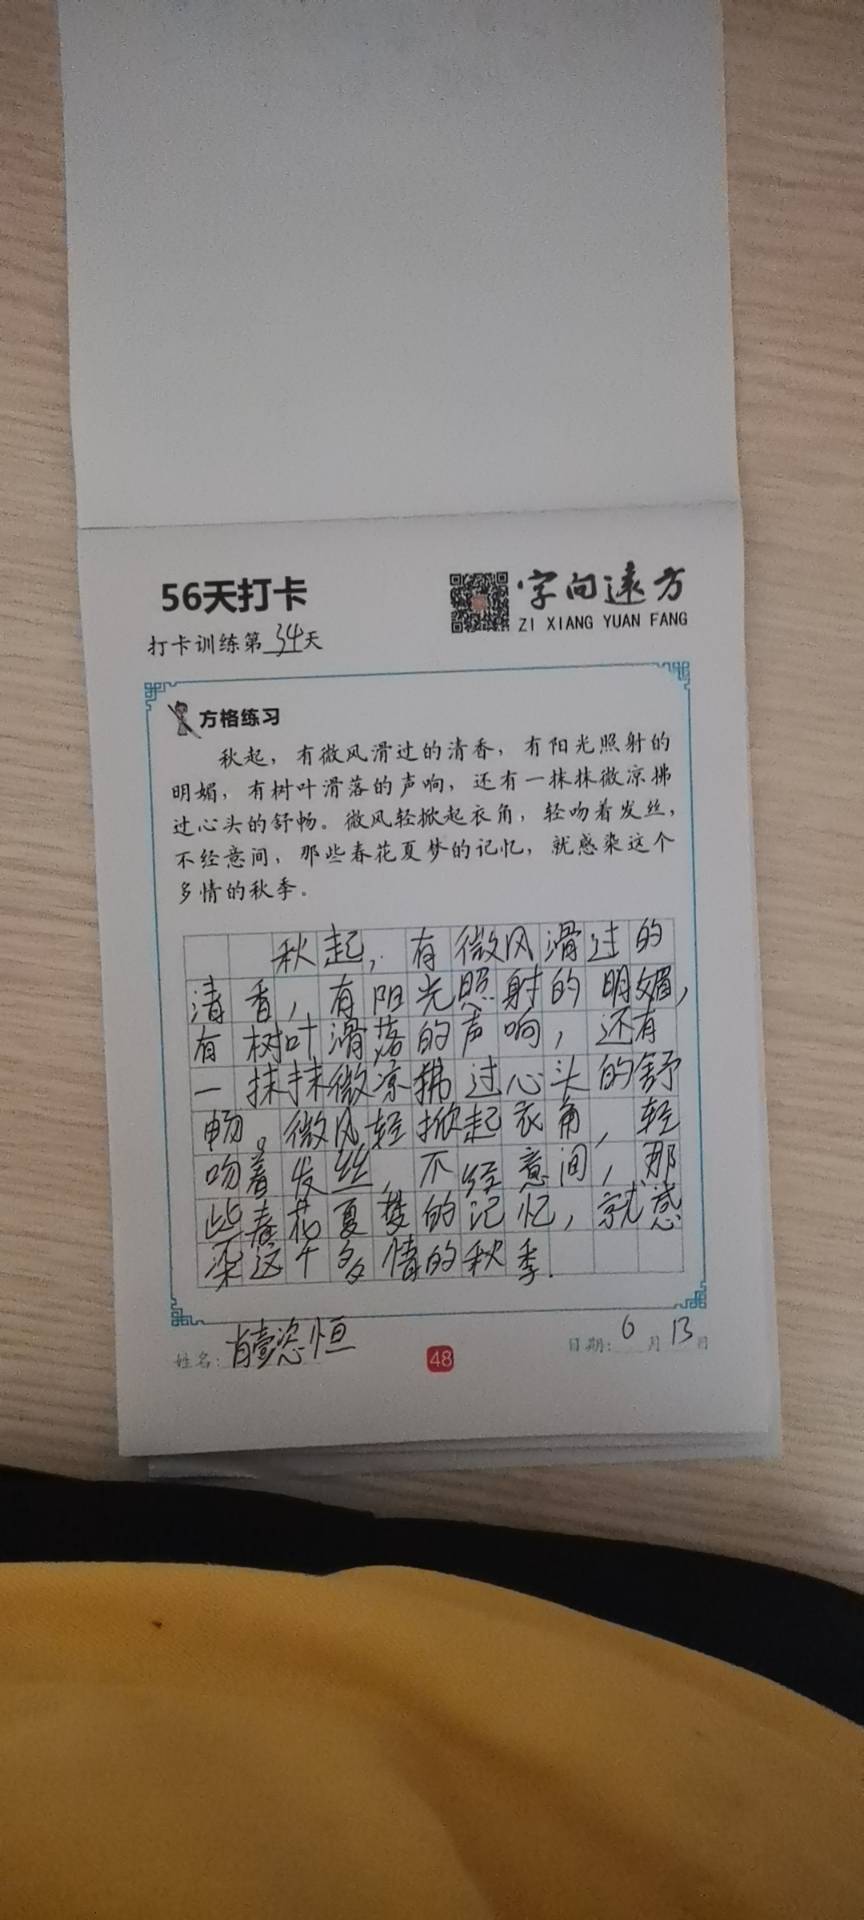 56天打卡
字向远方
ZI XIANG YUAN FANG
打卡训练第34天
方格练习
秋起，有微风滑过的清香，有阳光照射的
明媚，有树叶滑落的声响，还有一抹抹微凉拂
过心头的舒畅。微风轻掀起衣角，轻吻着发丝，
不经意间，那些春花夏梦的记忆，就感染这个
多情的秋季。
秋起，有微风滑过的
清香，有阳光照射的明媚，
有树叶滑落的声响，还有
一抹抹微凉拂过心头的舒
畅。微风轻掀起衣角，轻
吻着发丝，不经意间，那
些春花夏梦的记忆，就感
染这个多情的秋季.
姓名：肖懿恒
48
日期：6月13日